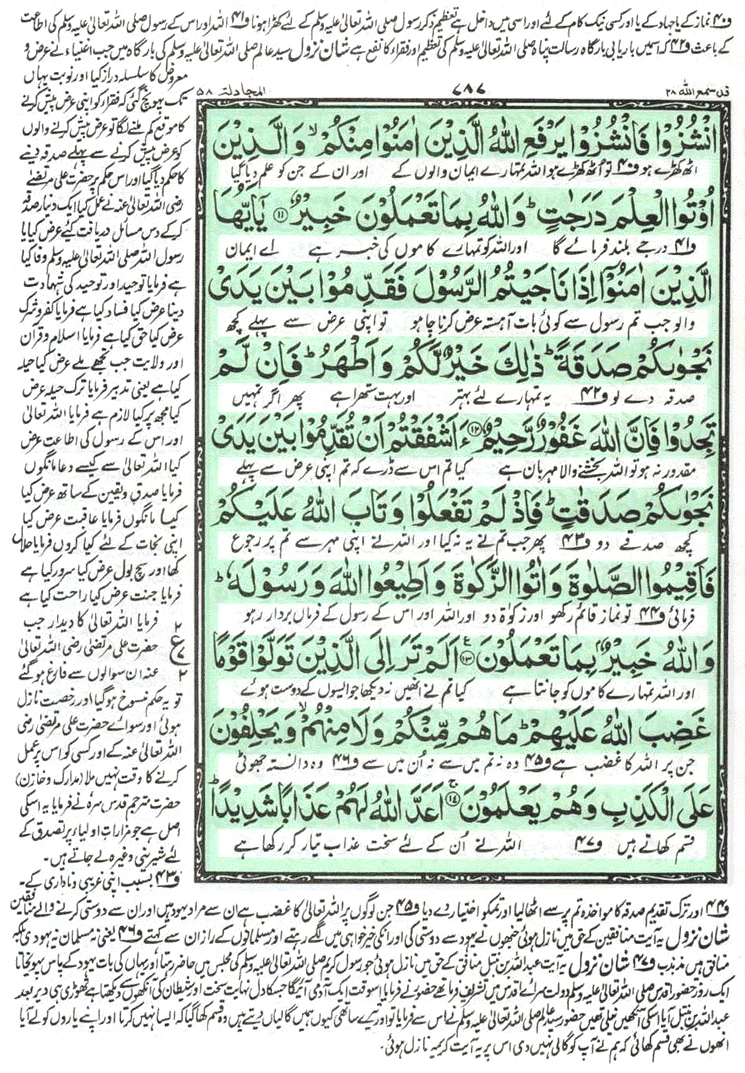 ف۴۰ نماز کے یا جہاد کے یا اور کسی نیک کام کے لئے اور اسی میں داخل ہے تعظیم ذکر رسول صلی اللہ تعالیٰ علیہ وسلم کے لئے کھڑا ہونا ف۴۱ اللہ اور اس کے رسول صلی اللہ تعالیٰ علیہ وسلم کی اطاعت
کے باعث ف۴۲ کہ اسمیں باریابی بارگاہ رسالت پناہ صلی اللہ تعالیٰ علیہ وسلم کی تعظیم اور فقراء کا نفع ہے شان نزول سید عالم صلی اللہ تعالیٰ علیہ وسلم کی بارگاہ میں جب اغنیاء نے عرض و
معروض کا سلسلہ دراز کیا اور نوبت یہاں
تک پہونچ گئی کہ فقراء کو اپنی عرض پیش کرنے
کا موقع کم ملنے لگا تو عرض پیش کرنے والوں
کو عرض پیش کرنے سے پہلے صدقہ دینے
کا حکم دیا گیا اور اس حکم پر حضرت علی مرتضیٰ
رضی اللہ تعالیٰ عنہ نے عمل کیا ایک دینار صدقہ
کرکے دس مسائل دریافت کئے عرض کیا یا
رسول اللہ صلی اللہ تعالیٰ علیہ وسلم وفا کیا
ہے فرمایا توحید اور توحید کی شہادت
دینا عرض کیا فساد کیا ہے فرمایا کفر و شرک
عرض کیا حق کیا ہے فرمایا اسلام و قرآن
اور ولایت جب تجھے ملے عرض کیا حیلہ
کیا ہے یعنی تدبیر فرمایا ترک حیلہ عرض
کیا مجھ پر کیا لازم ہے فرمایا اللہ تعالیٰ
اور اس کے رسول کی اطاعت عرض
کیا اللہ تعالیٰ سے کیسے دعا مانگوں
فرمایا صدق و یقین کے ساتھ عرض کیا
کیا مانگوں فرمایا عاقبت عرض کیا
اپنی نجات کے لئے کیا کروں فرمایا حلال
کھا اور سچ بول عرض کیا سرور کیا ہے
فرمایا جنت عرض کیا راحت کیا ہے
فرمایا اللہ تعالیٰ کا دیدار جب
حضرت علی مرتضیٰ رضی اللہ تعالیٰ
عنہ ان سوالوں سے فارغ ہو گئے
تو یہ حکم منسوخ ہو گیا اور رخصت نازل
ہوئی اور سوائے حضرت علی مرتضیٰ رضی
اللہ تعالیٰ عنہ کے اور کسی کو اس پر عمل
کرنے کا وقت نہیں ملا (مدارک و خازن)
حضرت مترجم قدس سرہ نے فرمایا یہ اسکی
اصل ہے جو مزارات اولیاء پر تصدق کے
لئے شیرینی وغیرہ لے جاتے ہیں۔
ف۴۳ بسبب اپنی غریبی و ناداری کے۔
قد سمع اللہ ۲۸
۷۸۷
المجادلۃ ۵۸
انْشُزُوْا فَانْشُزُوْا يَرْفَعِ اللّٰهُ الَّذِيْنَ اٰمَنُوْا مِنْكُمْ ۙ وَالَّذِيْنَ
اٹھ کھڑے ہو ف۴۰ تو اٹھ کھڑے ہو اللہ تمہارے ایمان والوں کے اور ان کے جن کو علم دیا گیا
اُوْتُوا الْعِلْمَ دَرَجٰتٍ ؕ وَاللّٰهُ بِمَا تَعْمَلُوْنَ خَبِيْرٌ ﴿۱۱﴾ يٰۤاَيُّهَا
ف۴۱ درجے بلند فرمائے گا اور اللہ کو تمہارے کاموں کی خبر ہے اے ایمان
الَّذِيْنَ اٰمَنُوْۤا اِذَا نَاجَيْتُمُ الرَّسُوْلَ فَقَدِّمُوْا بَيْنَ يَدَيْ
والو جب تم رسول سے کوئی بات آہستہ عرض کرنا چاہو تو اپنی عرض سے پہلے کچھ
نَجْوٰىكُمْ صَدَقَةً ؕ ذٰلِكَ خَيْرٌ لَّكُمْ وَاَطْهَرُ ؕ فَاِنْ لَّمْ
صدقہ دے لو ف۴۲ یہ تمہارے لئے بہتر اور بہت ستھرا ہے پھر اگر تمہیں
تَجِدُوْا فَاِنَّ اللّٰهَ غَفُوْرٌ رَّحِيْمٌ ﴿۱۲﴾ ءَاَشْفَقْتُمْ اَنْ تُقَدِّمُوْا بَيْنَ يَدَيْ
مقدور نہ ہو تو اللہ بخشنے والا مہربان ہے کیا تم اس سے ڈرے کہ تم اپنی عرض سے پہلے
نَجْوٰىكُمْ صَدَقٰتٍ ؕ فَاِذْ لَمْ تَفْعَلُوْا وَتَابَ اللّٰهُ عَلَيْكُمْ
کچھ صدقے دو ف۴۳ پھر جب تم نے یہ نہ کیا اور اللہ نے اپنی مہر سے تم پر رجوع
فَاَقِيْمُوا الصَّلٰوةَ وَاٰتُوا الزَّكٰوةَ وَاَطِيْعُوا اللّٰهَ وَرَسُوْلَهٗ ؕ
فرمائی ف۴۴ تو نماز قائم رکھو اور زکوٰۃ دو اور اللہ اور اس کے رسول کے فرماں بردار رہو
وَاللّٰهُ خَبِيْرٌۢ بِمَا تَعْمَلُوْنَ ﴿۱۳﴾ اَلَمْ تَرَ اِلَى الَّذِيْنَ تَوَلَّوْا قَوْمًا
اور اللہ تمہارے کاموں کو جانتا ہے کیا تم نے انھیں نہ دیکھا جو ایسوں کے دوست ہوئے
غَضِبَ اللّٰهُ عَلَيْهِمْ ؕ مَا هُمْ مِّنْكُمْ وَلَا مِنْهُمْ ۙ وَيَحْلِفُوْنَ
جن پر اللہ کا غضب ہے ف۴۵ وہ نہ تم میں سے نہ اُن میں سے ف۴۶ وہ دانستہ جھوٹی
عَلَى الْكَذِبِ وَهُمْ يَعْلَمُوْنَ ﴿۱۴﴾ اَعَدَّ اللّٰهُ لَهُمْ عَذَابًا شَدِيْدًا ؕ
قسم کھاتے ہیں ف۴۷ اللہ نے اُن کے لئے سخت عذاب تیار کر رکھا ہے
ف۴۴ اور ترک تقدیم صدقہ کا مواخذہ تم پر سے اٹھا لیا اور تمکو اختیار دے دیا ف۴۵ جن لوگوں پر اللہ تعالیٰ کا غضب ہے ان سے مراد یہود ہیں اور ان سے دوستی کرنے والے منافقین
شان نزول یہ آیت منافقین کے حق میں نازل ہوئی جنھوں نے یہود سے دوستی کی اور انکی خیر خواہی میں لگے رہتے اور مسلمانوں کے راز ان سے کہتے ف۴۶ یعنی نہ مسلمان نہ یہودی بلکہ
منافق ہیں مذبذب ف۴۷ شان نزول یہ آیت عبداللہ بن نبتل منافق کے حق میں نازل ہوئی جو رسول کریم صلی اللہ تعالیٰ علیہ وسلم کی مجلس میں حاضر رہتا اور یہاں کی بات یہود کے پاس پہونچاتا
ایک روز حضور اقدس صلی اللہ تعالیٰ علیہ وسلم دولت سرائے اقدس میں تشریف فرما تھے حضور نے فرمایا اسوقت ایک آدمی آئیگا جسکا دل نہایت سخت اور شیطان کی آنکھوں دیکھتا ہے تھوڑی ہی دیر بعد
عبداللہ بن نبتل آیا اسکی آنکھیں نیلی تھیں حضور سید عالم صلی اللہ تعالیٰ علیہ وسلم نے اس سے فرمایا تو اور تیرے ساتھی کیوں ہمیں گالیاں دیتے ہیں وہ قسم کھا گیا کہ ایسا نہیں کرتا اور اپنے یاروں کو لے آیا
انھوں نے بھی قسم کھائی کہ ہم نے آپ کو گالی نہیں دی اس پر یہ آیت کریمہ نازل ہوئی۔